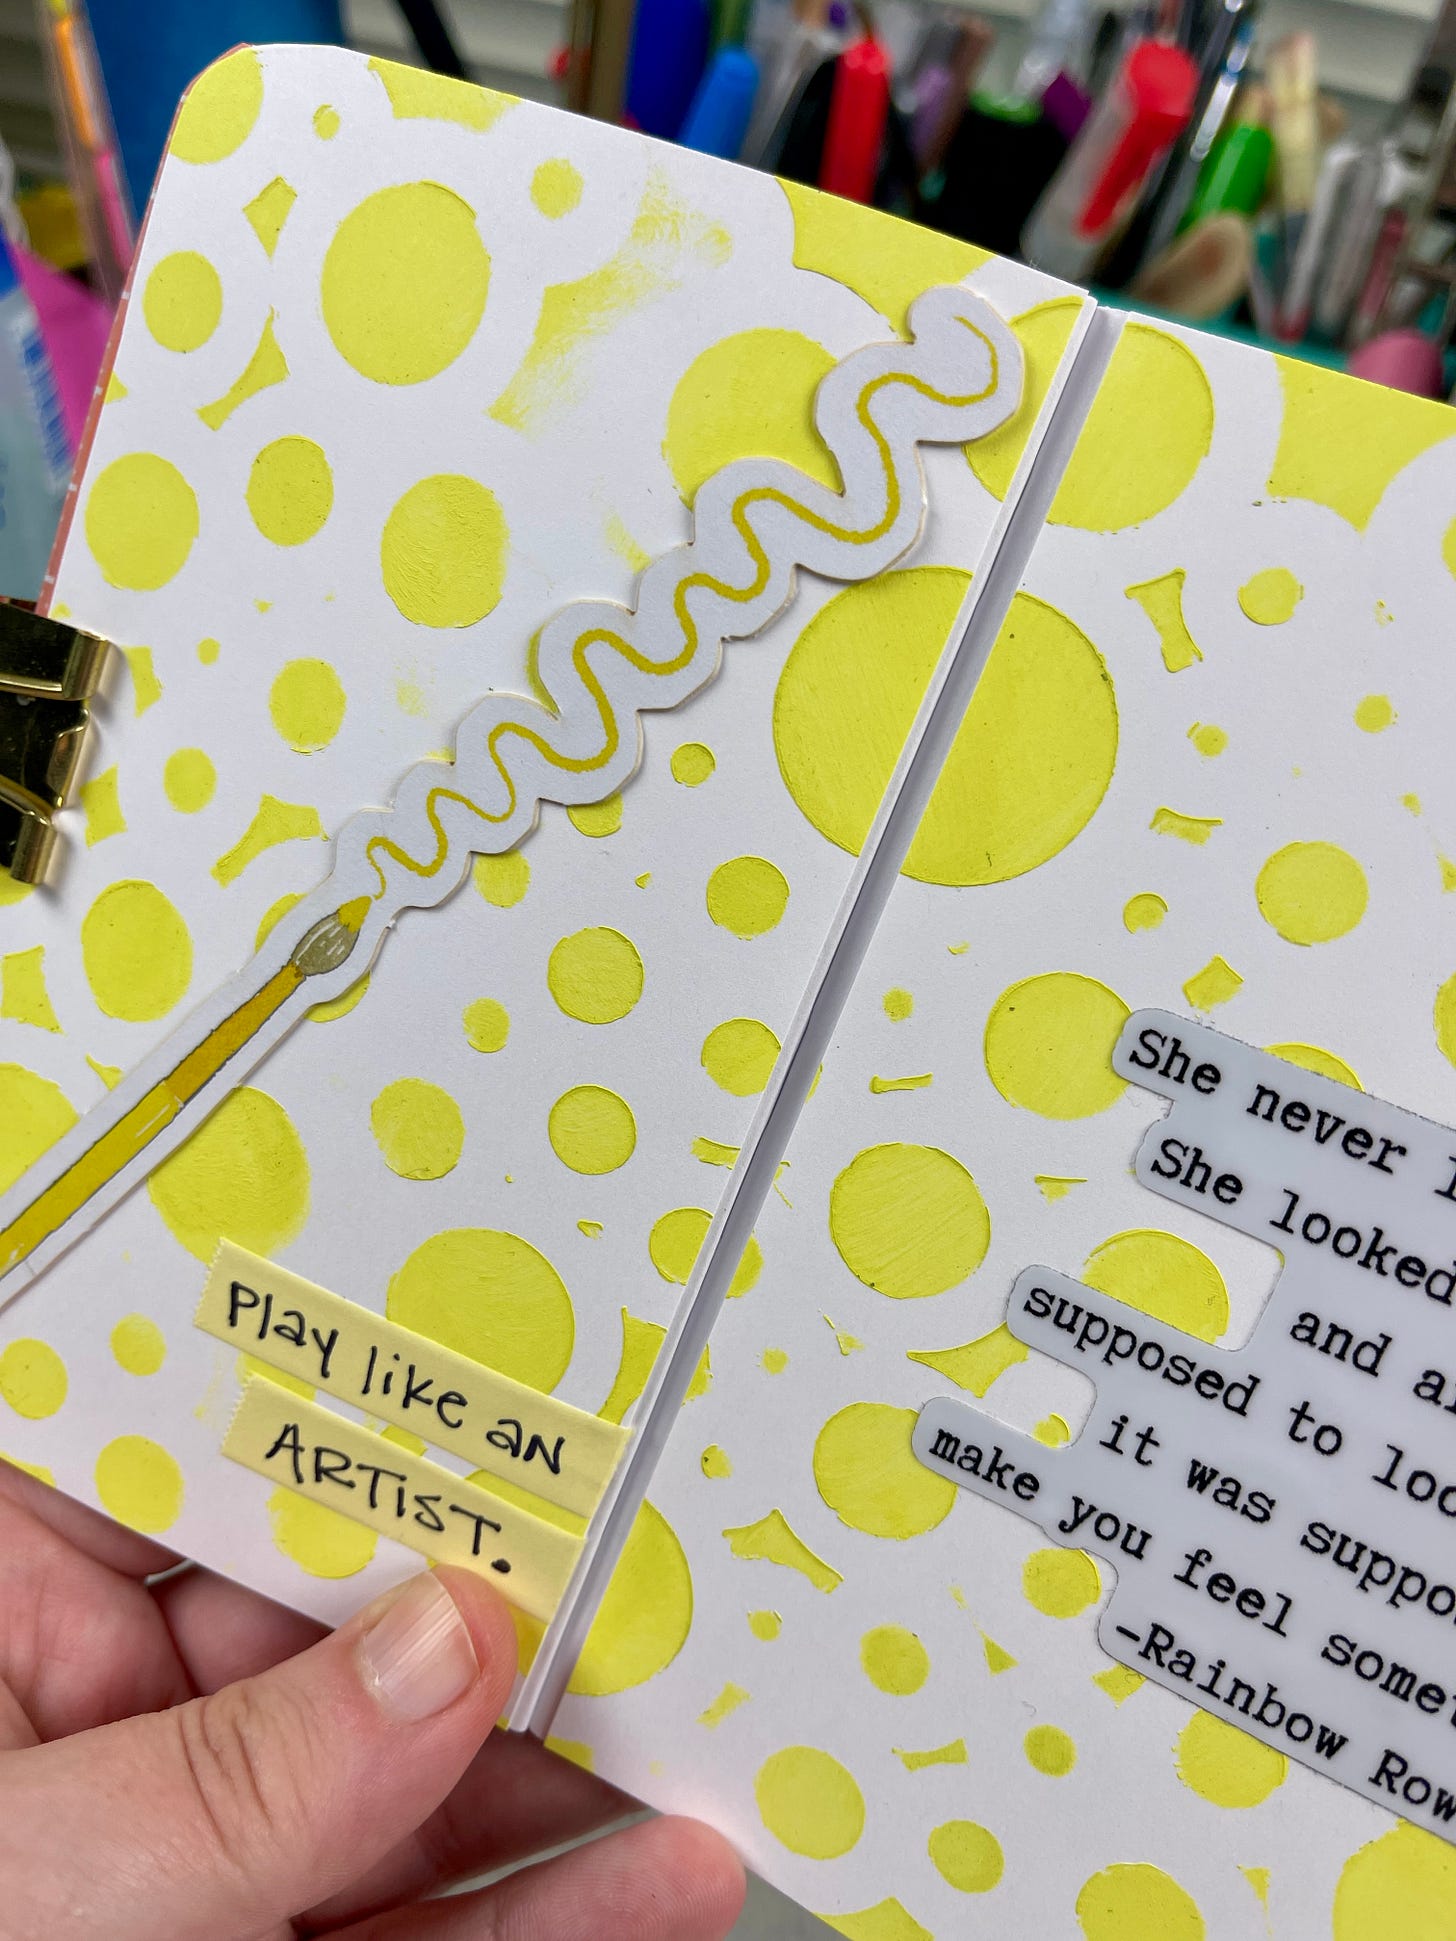 Play like an
ARTIST.
She never
She looked
and
supposed to
it was
make you feel
-Rainbow